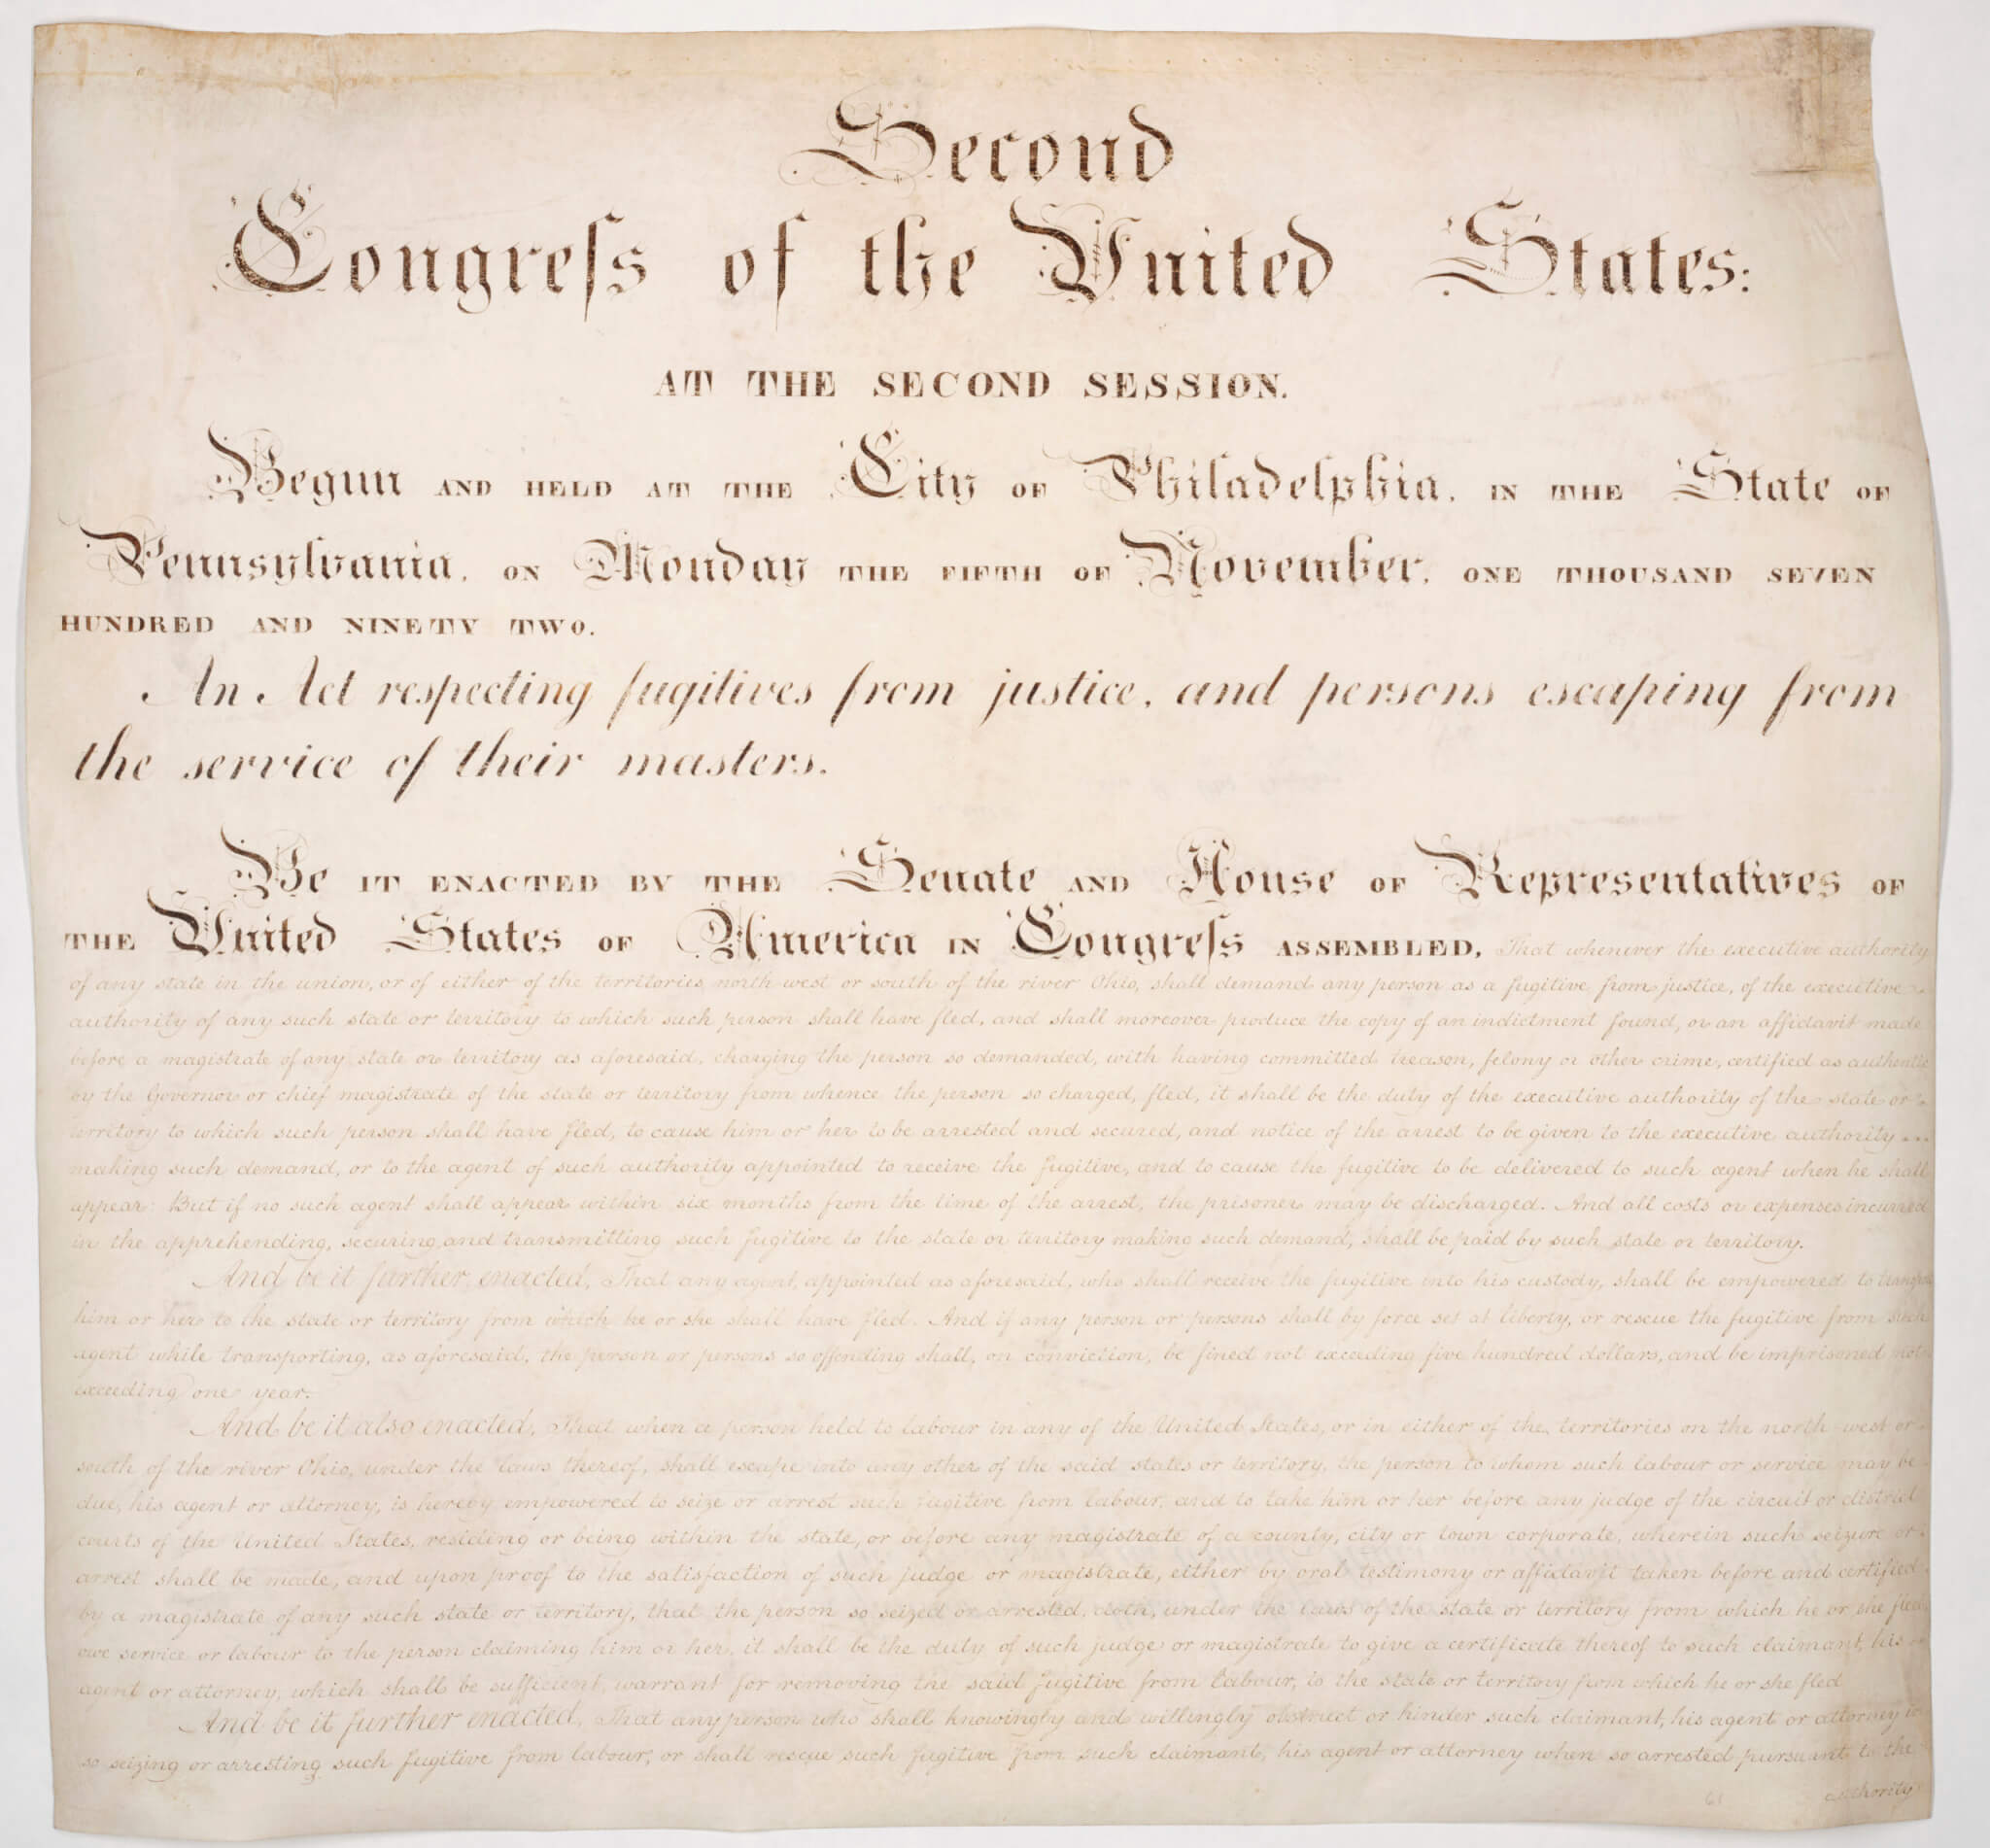 Second
Congreſs of the United States:
AT THE SECOND SESSION.
Begun AND HELD AT THE City OF Philadelphia, IN THE State OF
Pennsylvania, ON Monday THE FIFTH OF November, ONE THOUSAND SEVEN
HUNDRED AND NINETY TWO.
An Act respecting fugitives from justice, and persons escaping from
the service of their masters.
Be IT ENACTED BY THE Senate AND House OF Representatives OF
THE United States OF America IN Congreſs ASSEMBLED, That whenever the executive authority
of any state in the union, or of either of the territories north-west or south of the river Ohio, shall demand any person as a fugitive from justice, of the executive
authority of any such state or territory to which such person shall have fled, and shall moreover produce the copy of an indictment found, or an affidavit made
before a magistrate of any state or territory as aforesaid, charging the person so demanded, with having committed treason, felony or other crime, certified as authentic
by the Governor or chief magistrate of the state or territory from whence the person so charged, fled, it shall be the duty of the executive authority of the state or
territory to which such person shall have fled, to cause him or her to be arrested and secured, and notice of the arrest to be given to the executive authority
making such demand, or to the agent of such authority appointed to receive the fugitive, and to cause the fugitive to be delivered to such agent when he shall
appear: But if no such agent shall appear within six months from the time of the arrest, the prisoner may be discharged. And all costs or expenses incurred
in the apprehending, securing, and transmitting such fugitive to the state or territory making such demand, shall be paid by such state or territory.
And be it further enacted, That any agent, appointed as aforesaid, who shall receive the fugitive into his custody, shall be empowered to transport
him or her to the state or territory from which he or she shall have fled. And if any person or persons shall by force set at liberty, or rescue the fugitive from such
agent while transporting, as aforesaid, the person or persons so offending shall, on conviction, be fined not exceeding five hundred dollars, and be imprisoned not
exceeding one year.
And be it also enacted, That when a person held to labour in any of the United States, or in either of the territories on the north-west or
south of the river Ohio, under the laws thereof, shall escape into any other of the said states or territory, the person to whom such labour or service may be
due, his agent or attorney, is hereby empowered to seize or arrest such fugitive from labour, and to take him or her before any judge of the circuit or district
courts of the United States, residing or being within the state, or before any magistrate of a county, city or town corporate, wherein such seizure or
arrest shall be made, and upon proof to the satisfaction of such judge or magistrate, either by oral testimony or affidavit taken before and certified
by a magistrate of any such state or territory, that the person so seized or arrested, doth, under the laws of the state or territory from which he or she fled,
owe service or labour to the person claiming him or her, it shall be the duty of such judge or magistrate to give a certificate thereof to such claimant, his
agent or attorney, which shall be sufficient warrant for removing the said fugitive from labour, to the state or territory from which he or she fled
And be it further enacted, That any person who shall knowingly and willingly obstruct or hinder such claimant, his agent or attorney in
so seizing or arresting such fugitive from labour, or shall rescue such fugitive from such claimant, his agent or attorney when so arrested pursuant to the
authority